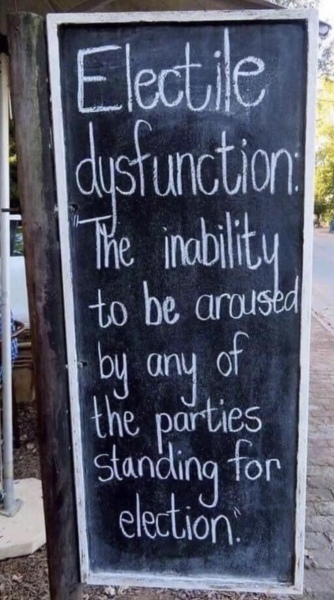 Electile
dysfunction:
"The inability
to be aroused
by any of
the parties
standing for
election."